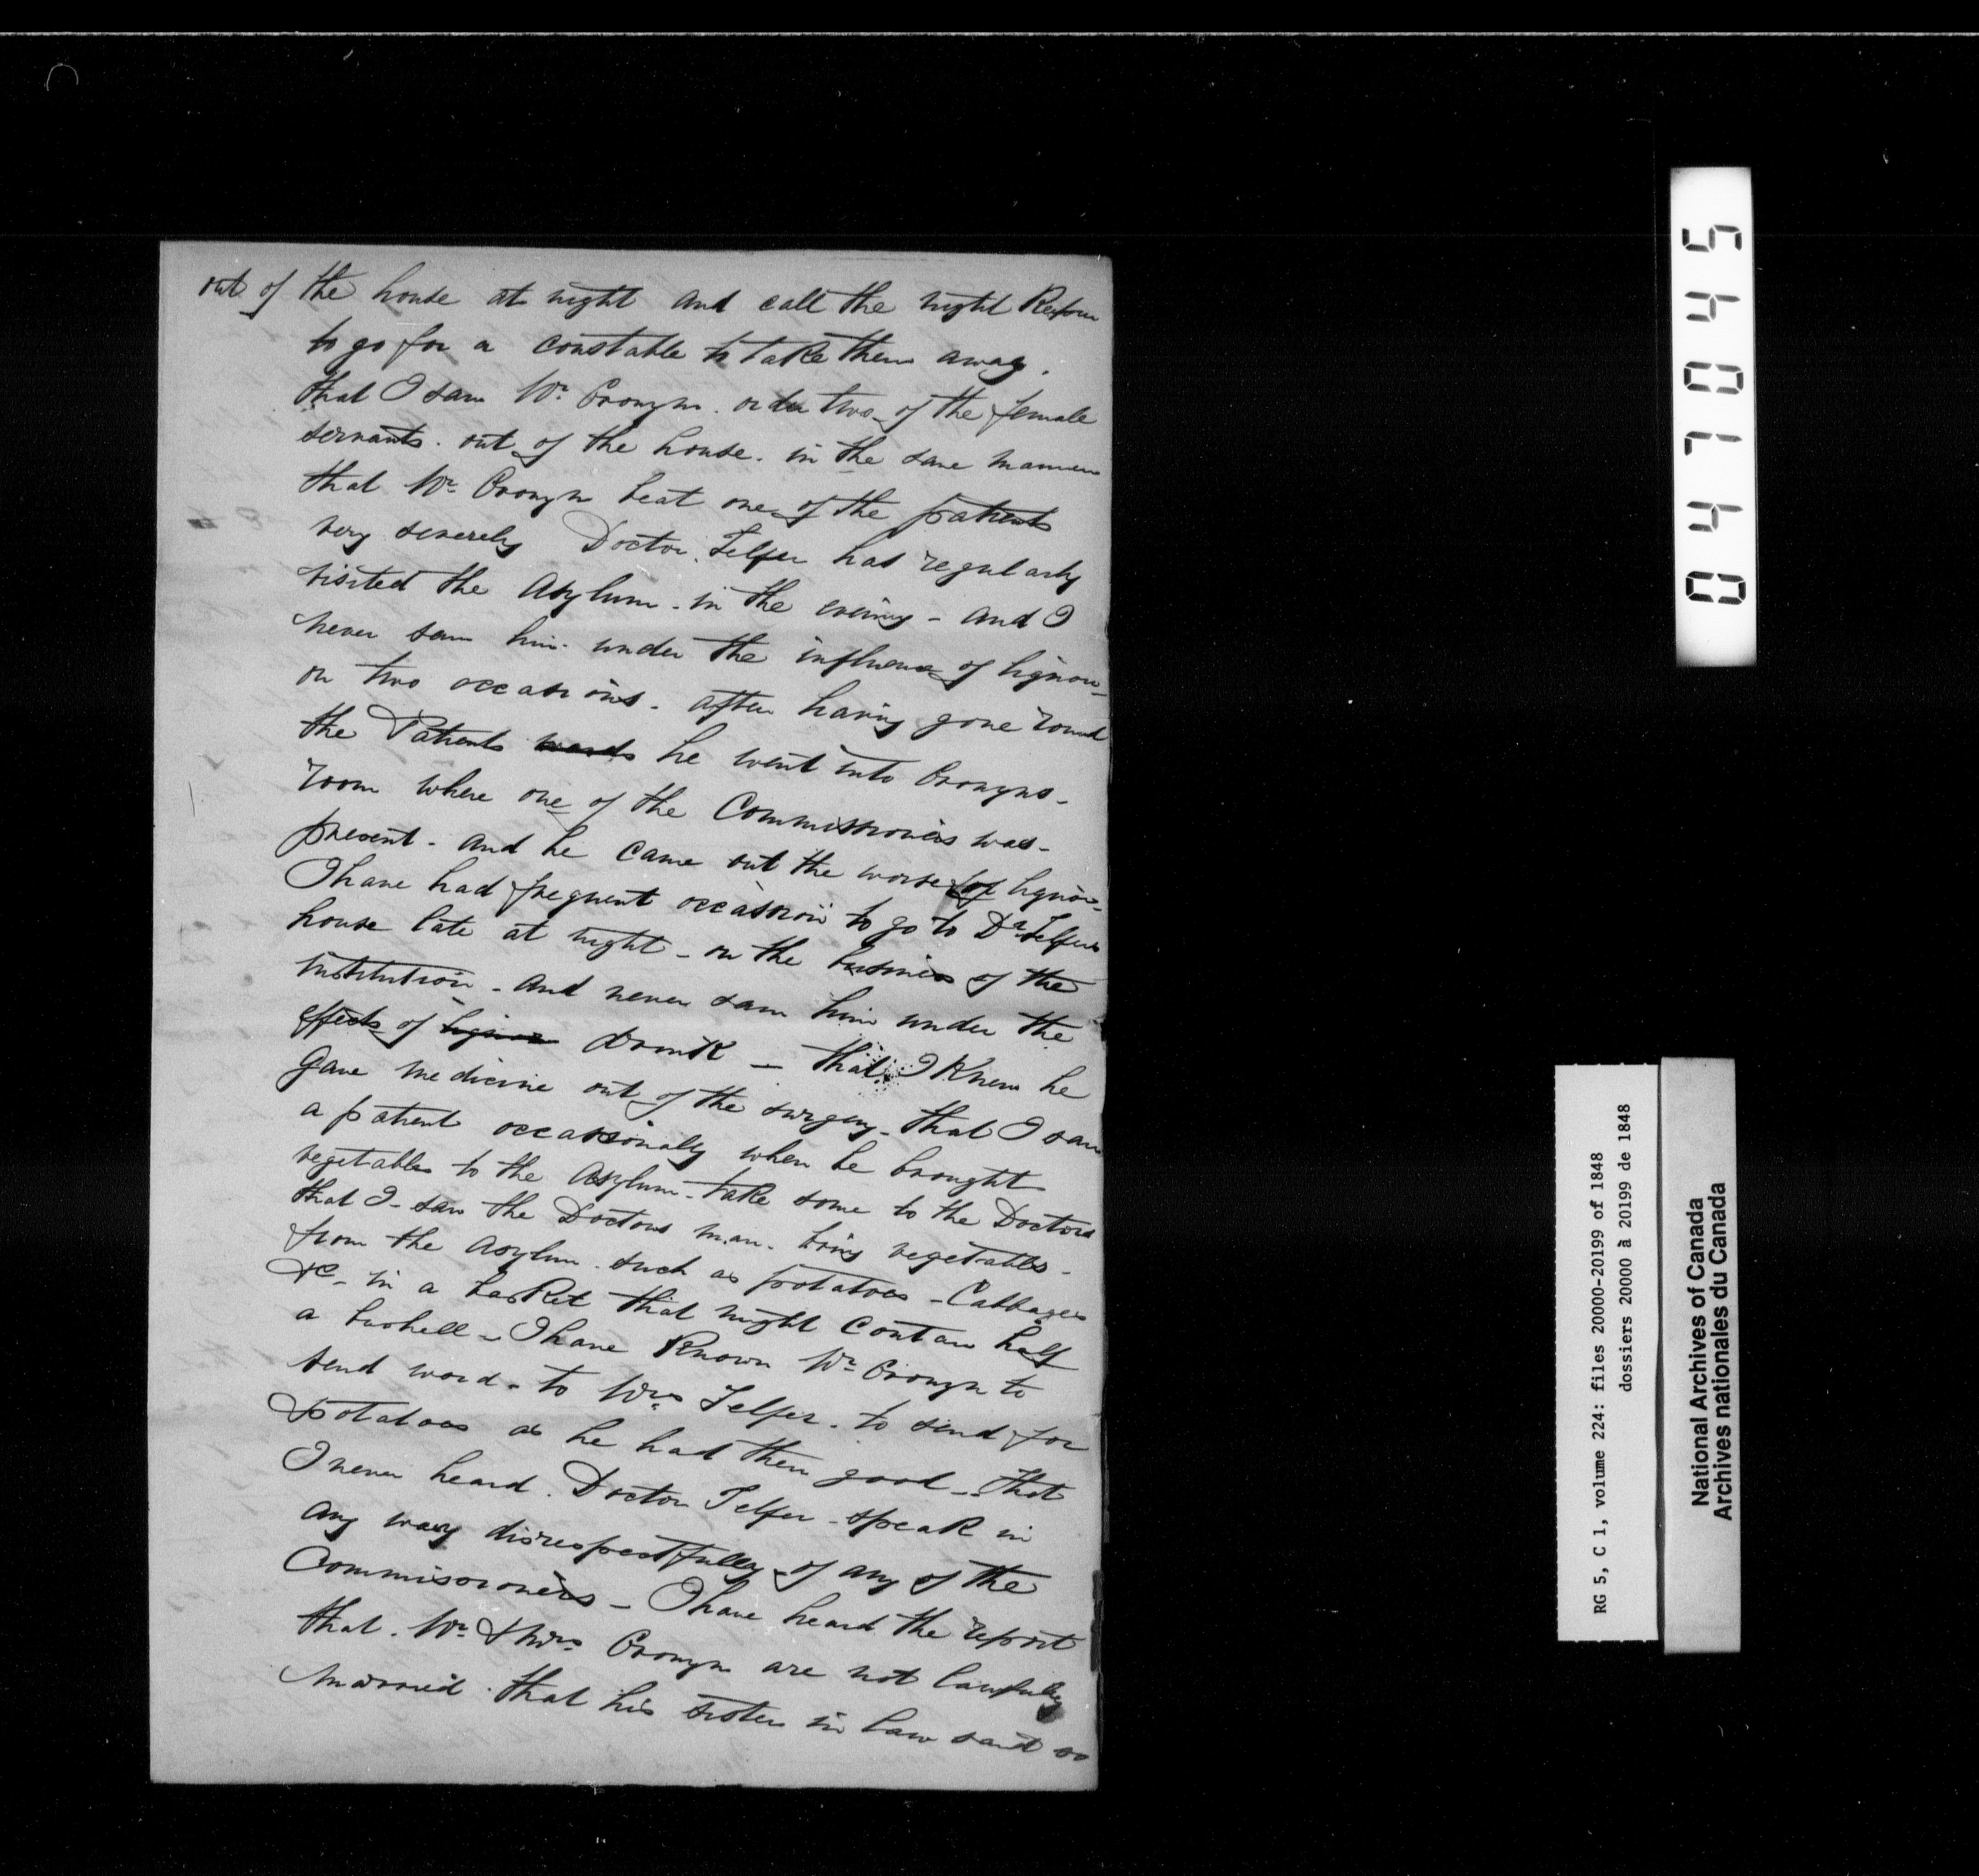 out of the house at night and call the night Keeper
to go for a constable to take them away.
that I saw Mr. Cronyn. order two of the female
servants. out of the house. in the same manner
that Mr. Cronyn beat one of the patients
very severely Doctor. Telfer has regularly
visited the Asylum - in the evening - and I
never saw him. under the influence of liquor -
on two occasions. after having gone round
the Patients wards he went into Cronyns -
room where one of the Commissioners was -
present - and he came out the worse for liquor -
I have had frequent occasion to go to Dr. Telfers
house late at night - on the business of the
institution - and never saw him under the
effects of liquor drink - that I Knew he
gave medicine out of the surgery - that I saw
a patient occasionally when he brought
vegetables to the Asylum - take some to the Doctors
that I - saw the Doctors man. bring vegetables -
from the Asylum. such as potatoes - Cabbages
&c - in a basket that might contain half
a bushell - I have Known Mr. Cronyn to
send word - to Mrs. Telfer. to send for
potatoes as he had them good - that
I never heard. Doctor Telfer - speak in
any way disrespectfully of any of the
Commissioners - I have heard the report
that. Mr. & Mrs. Cronyn are not lawfully
married. that his sister in law said so
047045
RG 5, C 1, volume 224: files 20000-20199 of 1848
dossiers 20000 à 20199 de 1848
National Archives of Canada
Archives nationales du Canada